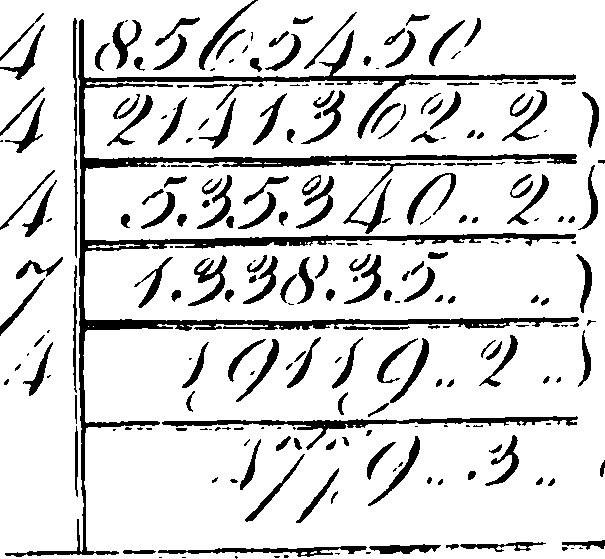 4 8565450
4 2141362..2 )
4 535340..2..)
7 133835.. ..)
4 19119..2..)
4779..3..